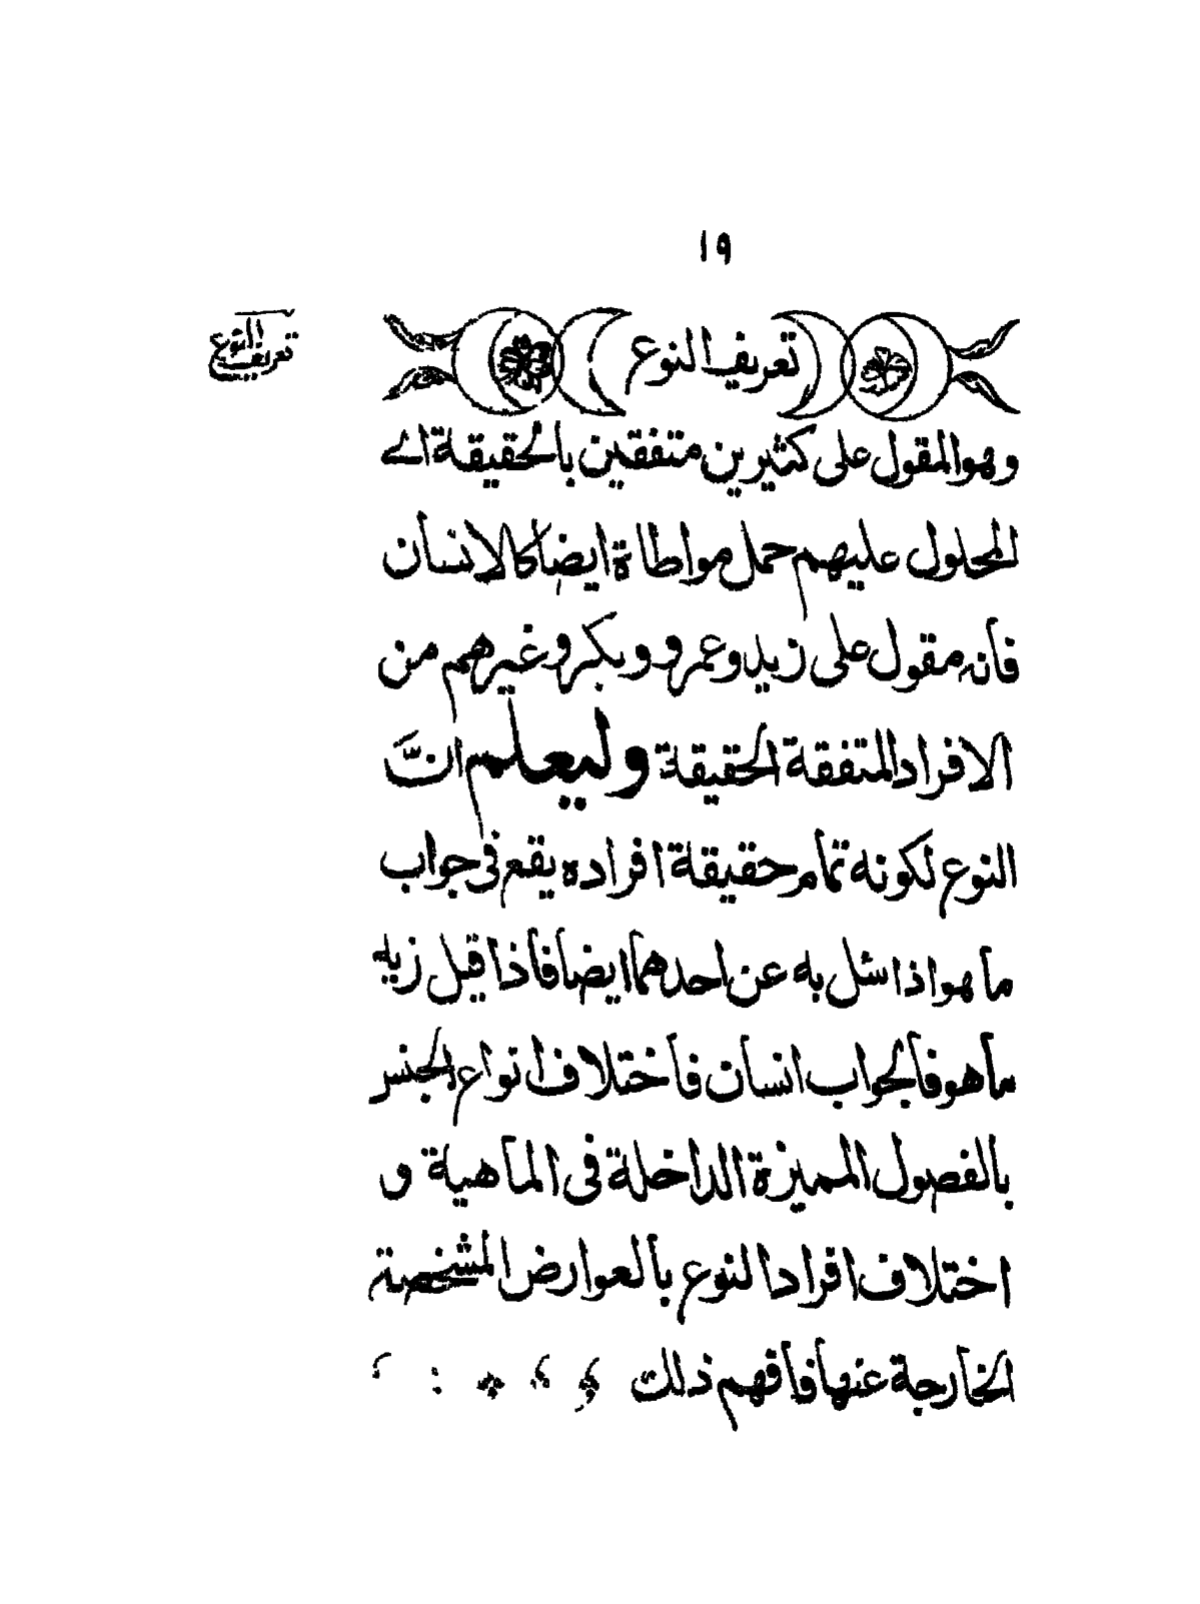 ١٩
تعريف النوع
تعريف النوع
وهو المقول على كثيرين متفقين بالحقيقة اے
المحلول عليهم حمل مواطاة ايضا كالانسان
فانه مقول على زيد وعمرو وبكر وغيرهم من
الافراد المتفقة الحقيقة وليعلم انّ
النوع لكونه تمام حقيقة افراده يقع فى جواب
ما هو اذا سئل به عن احدهما ايضا فاذا قيل زيد
ما هو فالجواب انسان فاختلاف انواع الجنس
بالفصول المميزة الداخلة فى الماهية و
اختلاف افراد النوع بالعوارض المشخصة
الخارجة عنها فافهم ذلك